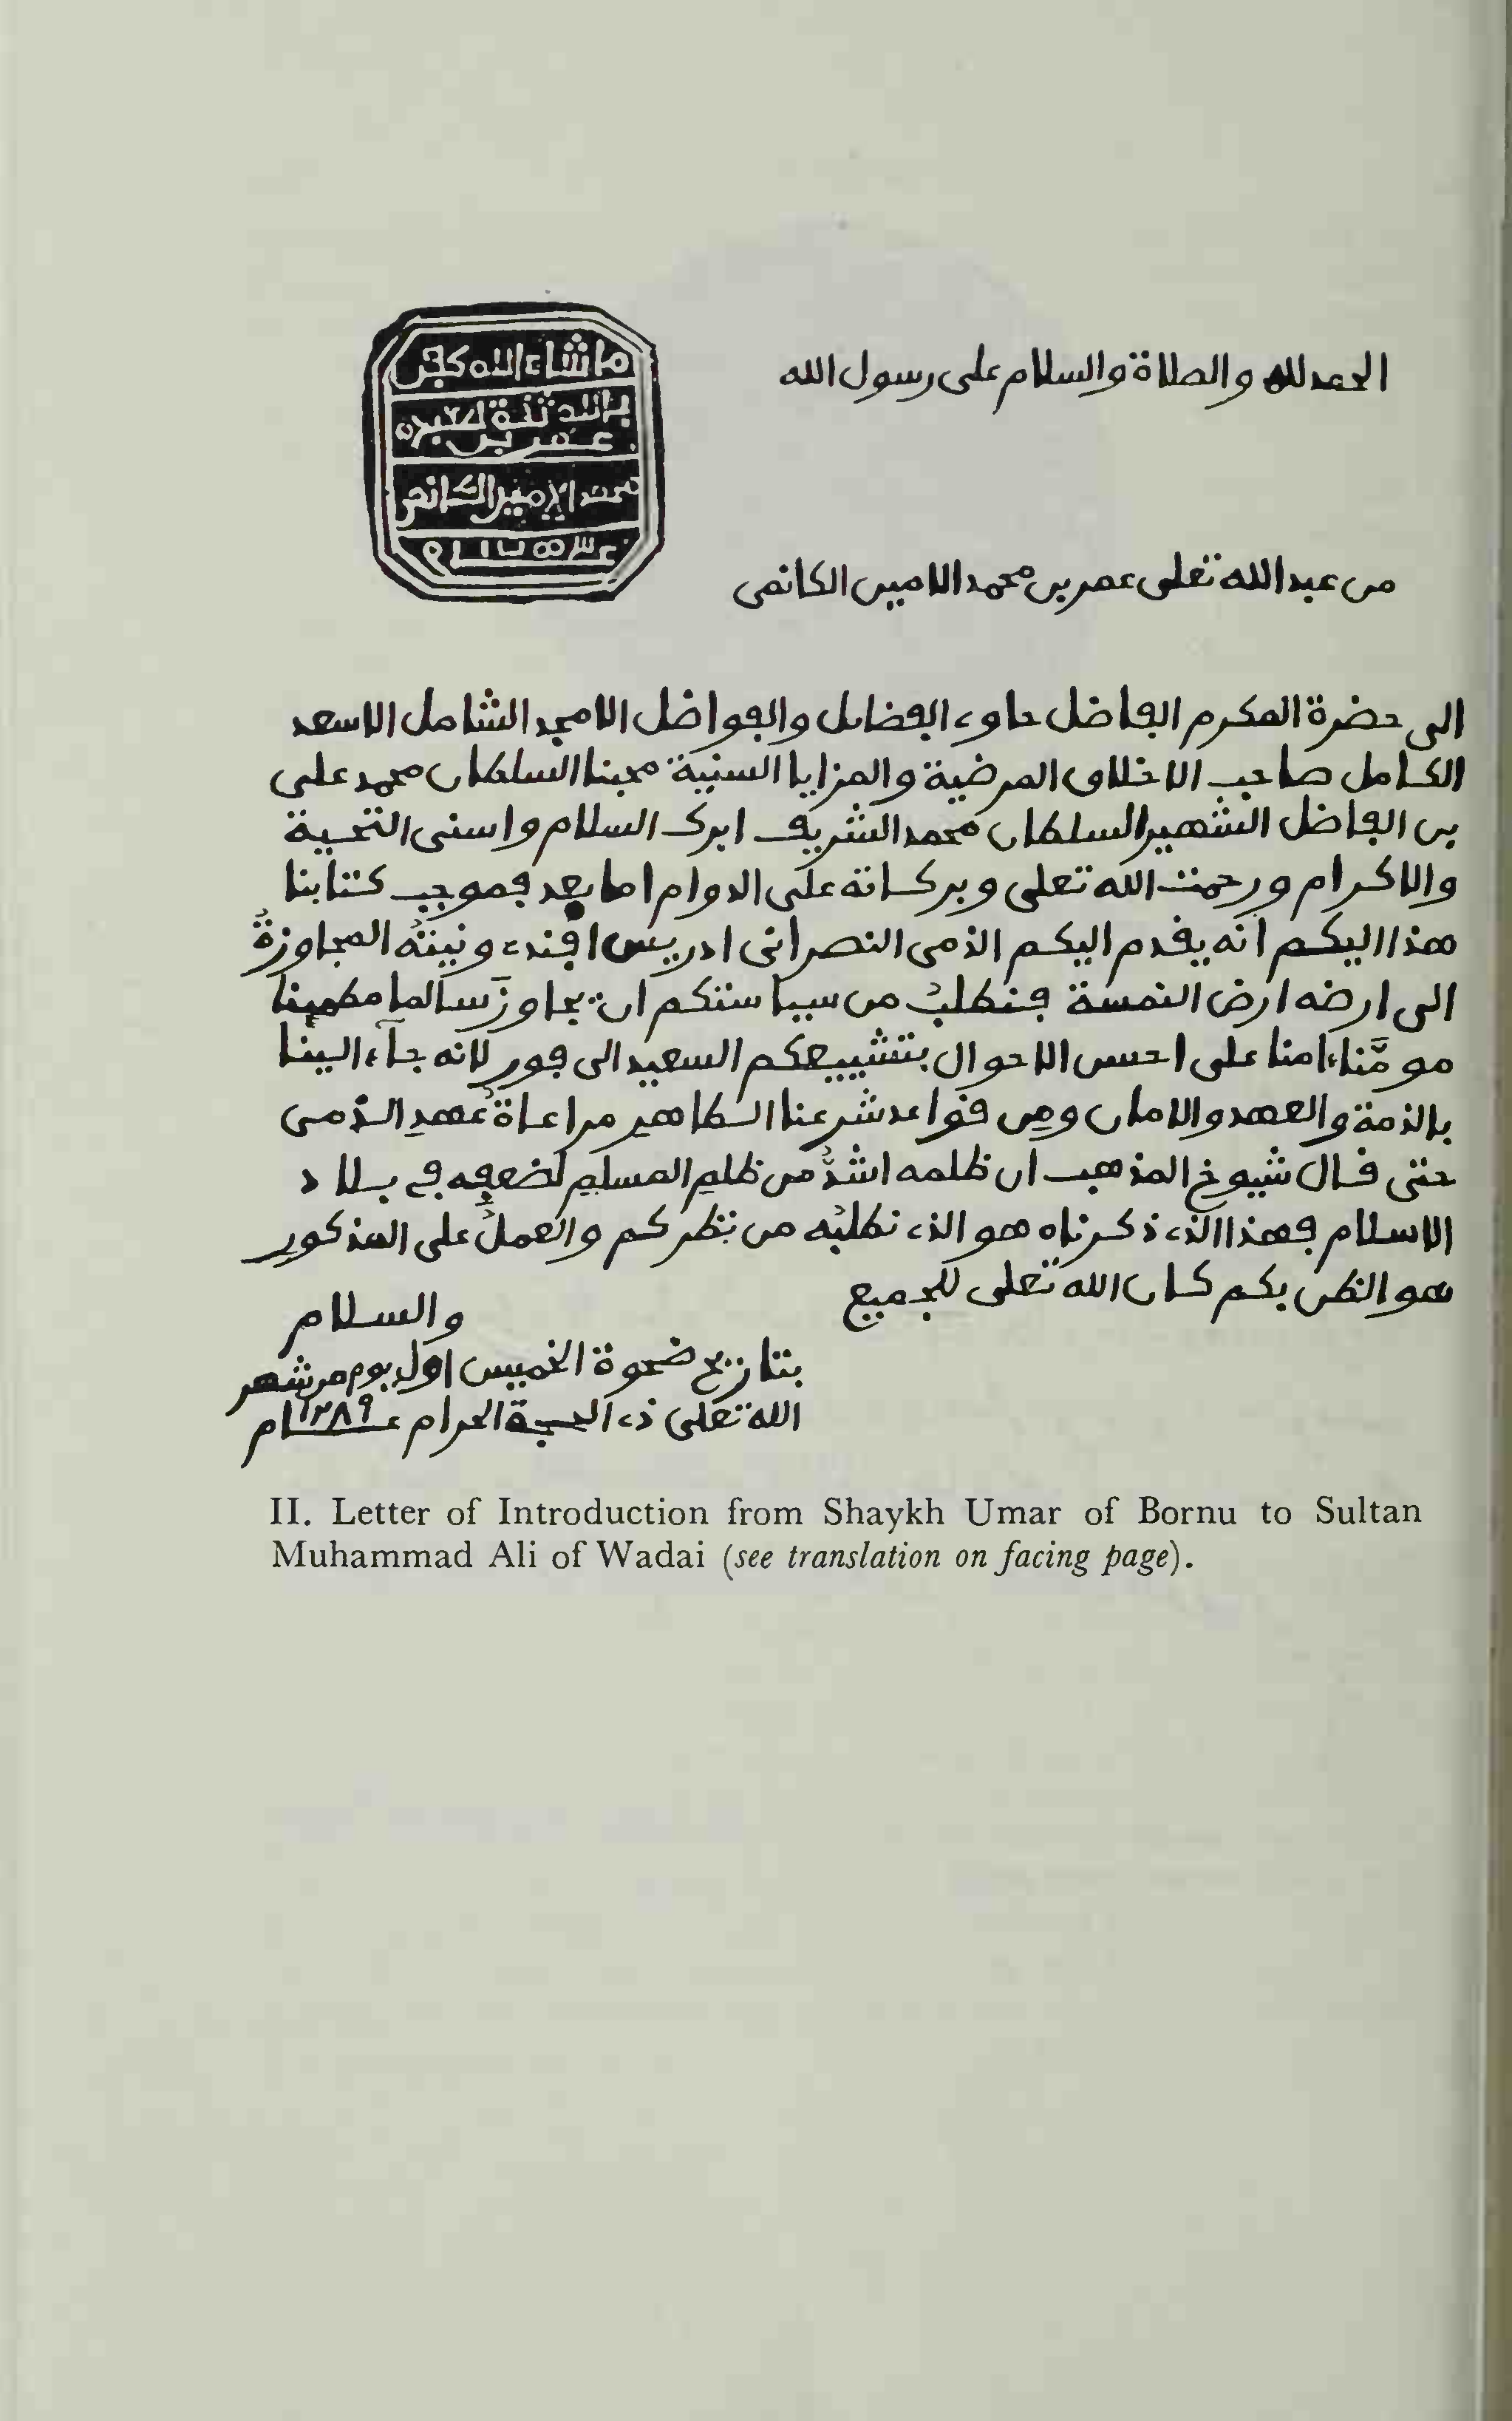 الحمد لله والصلاة والسلام على رسول الله
ما شاء الله
عمر بن
محمد الامين الكانمى
من عبد الله تعلى عمر بن محمد الامين الكانمى
الى حضرة المكرم الفاضل حاوى الفضايل والفواضل الامجد الشامل الاسعد
الكامل صاحب الاخلاق المرضية والمزايا السنية محبنا السلطان محمد على
بن الفاضل الشهير السلطان محمد الشريف ابرك السلام واسنى التحية
والاكرام ورحمت الله تعلى وبركاته على الدوام اما بعد فموجب كتابنا
هذا اليكم انه يقدم اليكم الذمى النصرانى ادريس افندى ونيتُه المجاوزةُ
الى ارضه ارض النمسة فنطلبُ من سياستكم ان يجاوزَ سالما مطمينا
مومَّنا امنا على احسن الاحوال بتشييعكم السعيد الى فور لانه جآء الينا
بالذمة والعهد والامان ومن قواعد شرعنا الطاهر مراعاةُ عهدِ الذمى
حتى قال شيوخ المذهب ان ظلمه اشدُّ من ظلمِ المسلمِ لضعفِه فى بلاد
الاسلام فهذا الذى ذكرناه هو الذى نطلبُه من نظركم والعملُ على المذكورِ
هو الظن بكم كان الله تعلى للجميع
والسلام
بتاريخ ضحوة الخميس اول يوم من شهر
الله تعلى ذى الحجة الحرام عـ١٢٨٩ـام
II. Letter of Introduction from Shaykh Umar of Bornu to Sultan
Muhammad Ali of Wadai (see translation on facing page).